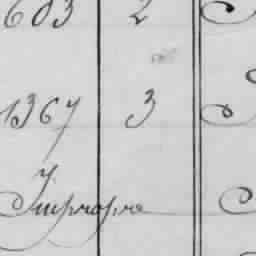 603 2
1367 3
Impropre